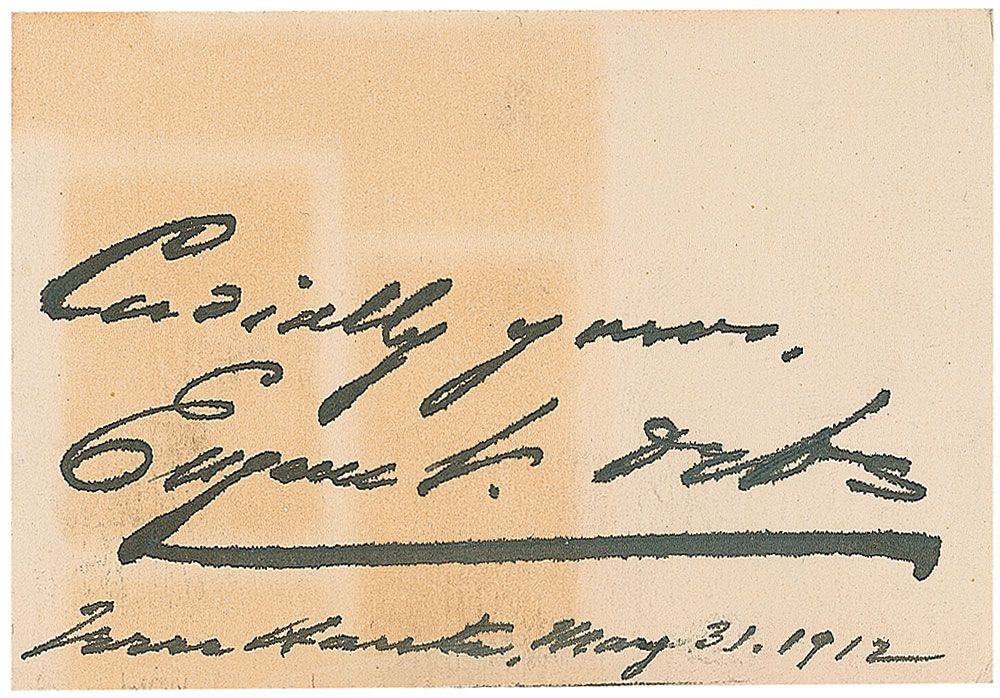 Cordially yours,
Eugene V. Debs
Terre Haute, May 31. 1912